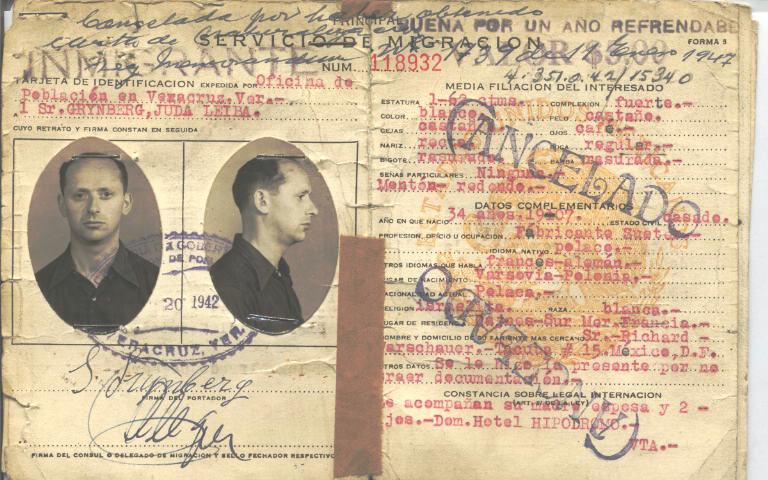 Cancelada por haber obtenido
PRINCIPAL
BUENA POR UN AÑO REFRENDABLE
SERVICIO DE MIGRACION
FORMA 5
INMIGRANTE
NUM. 118932
4.351.0.42/15340
TARJETA DE IDENTIFICACION EXPEDIDA POR Oficina de
Población en Veracruz.Ver.-
1 Sr.GRYNBERG, JUDA LEIBA.
CUYO RETRATO Y FIRMA CONSTAN EN SEGUIDA
DE POB
20 1942
VERACRUZ, VER.
FIRMA DEL PORTADOR
FIRMA DEL CONSUL O DELEGADO DE MIGRACION Y SELLO FECHADOR RESPECTIVO
MEDIA FILIACION DEL INTERESADO
ESTATURA 1-62 ctms. COMPLEXION fuerte.-
COLOR blanco PELO castaño.
CEJAS OJOS café.-
NARIZ BOCA regular.-
BIGOTE rasurado BARBA rasurada.-
SEÑAS PARTICULARES Ninguna.-
Mentón- redondo.-
CANCELADO
DATOS COMPLEMENTARIOS
AÑO EN QUE NACIO 34 años.19-07. ESTADO CIVIL casado.
PROFESION, OFICIO U OCUPACION Fabricante Suet
IDIOMA NATIVO polaco.-
OTROS IDIOMAS QUE HABLA francés-alemán.-
LUGAR DE NACIMIENTO Varsovia-Polonia.-
NACIONALIDAD ACTUAL Polaca.-
RELIGION RAZA blanca.-
LUGAR DE RESIDENCIA Sur Mer.Francia.-
NOMBRE Y DOMICILIO DE SU PARIENTE MAS CERCANO Sr.-Richard-
Warschauer. # 15.México,D.F.
OTROS DATOS Se le hizo la presente por no
traer documentación.-
CONSTANCIA SOBRE LEGAL INTERNACION
(ART. DE LA LEY)
e acompañan su madre esposa y 2 -
jos.-Dom.Hotel HIPODROMO.-
VTA.-